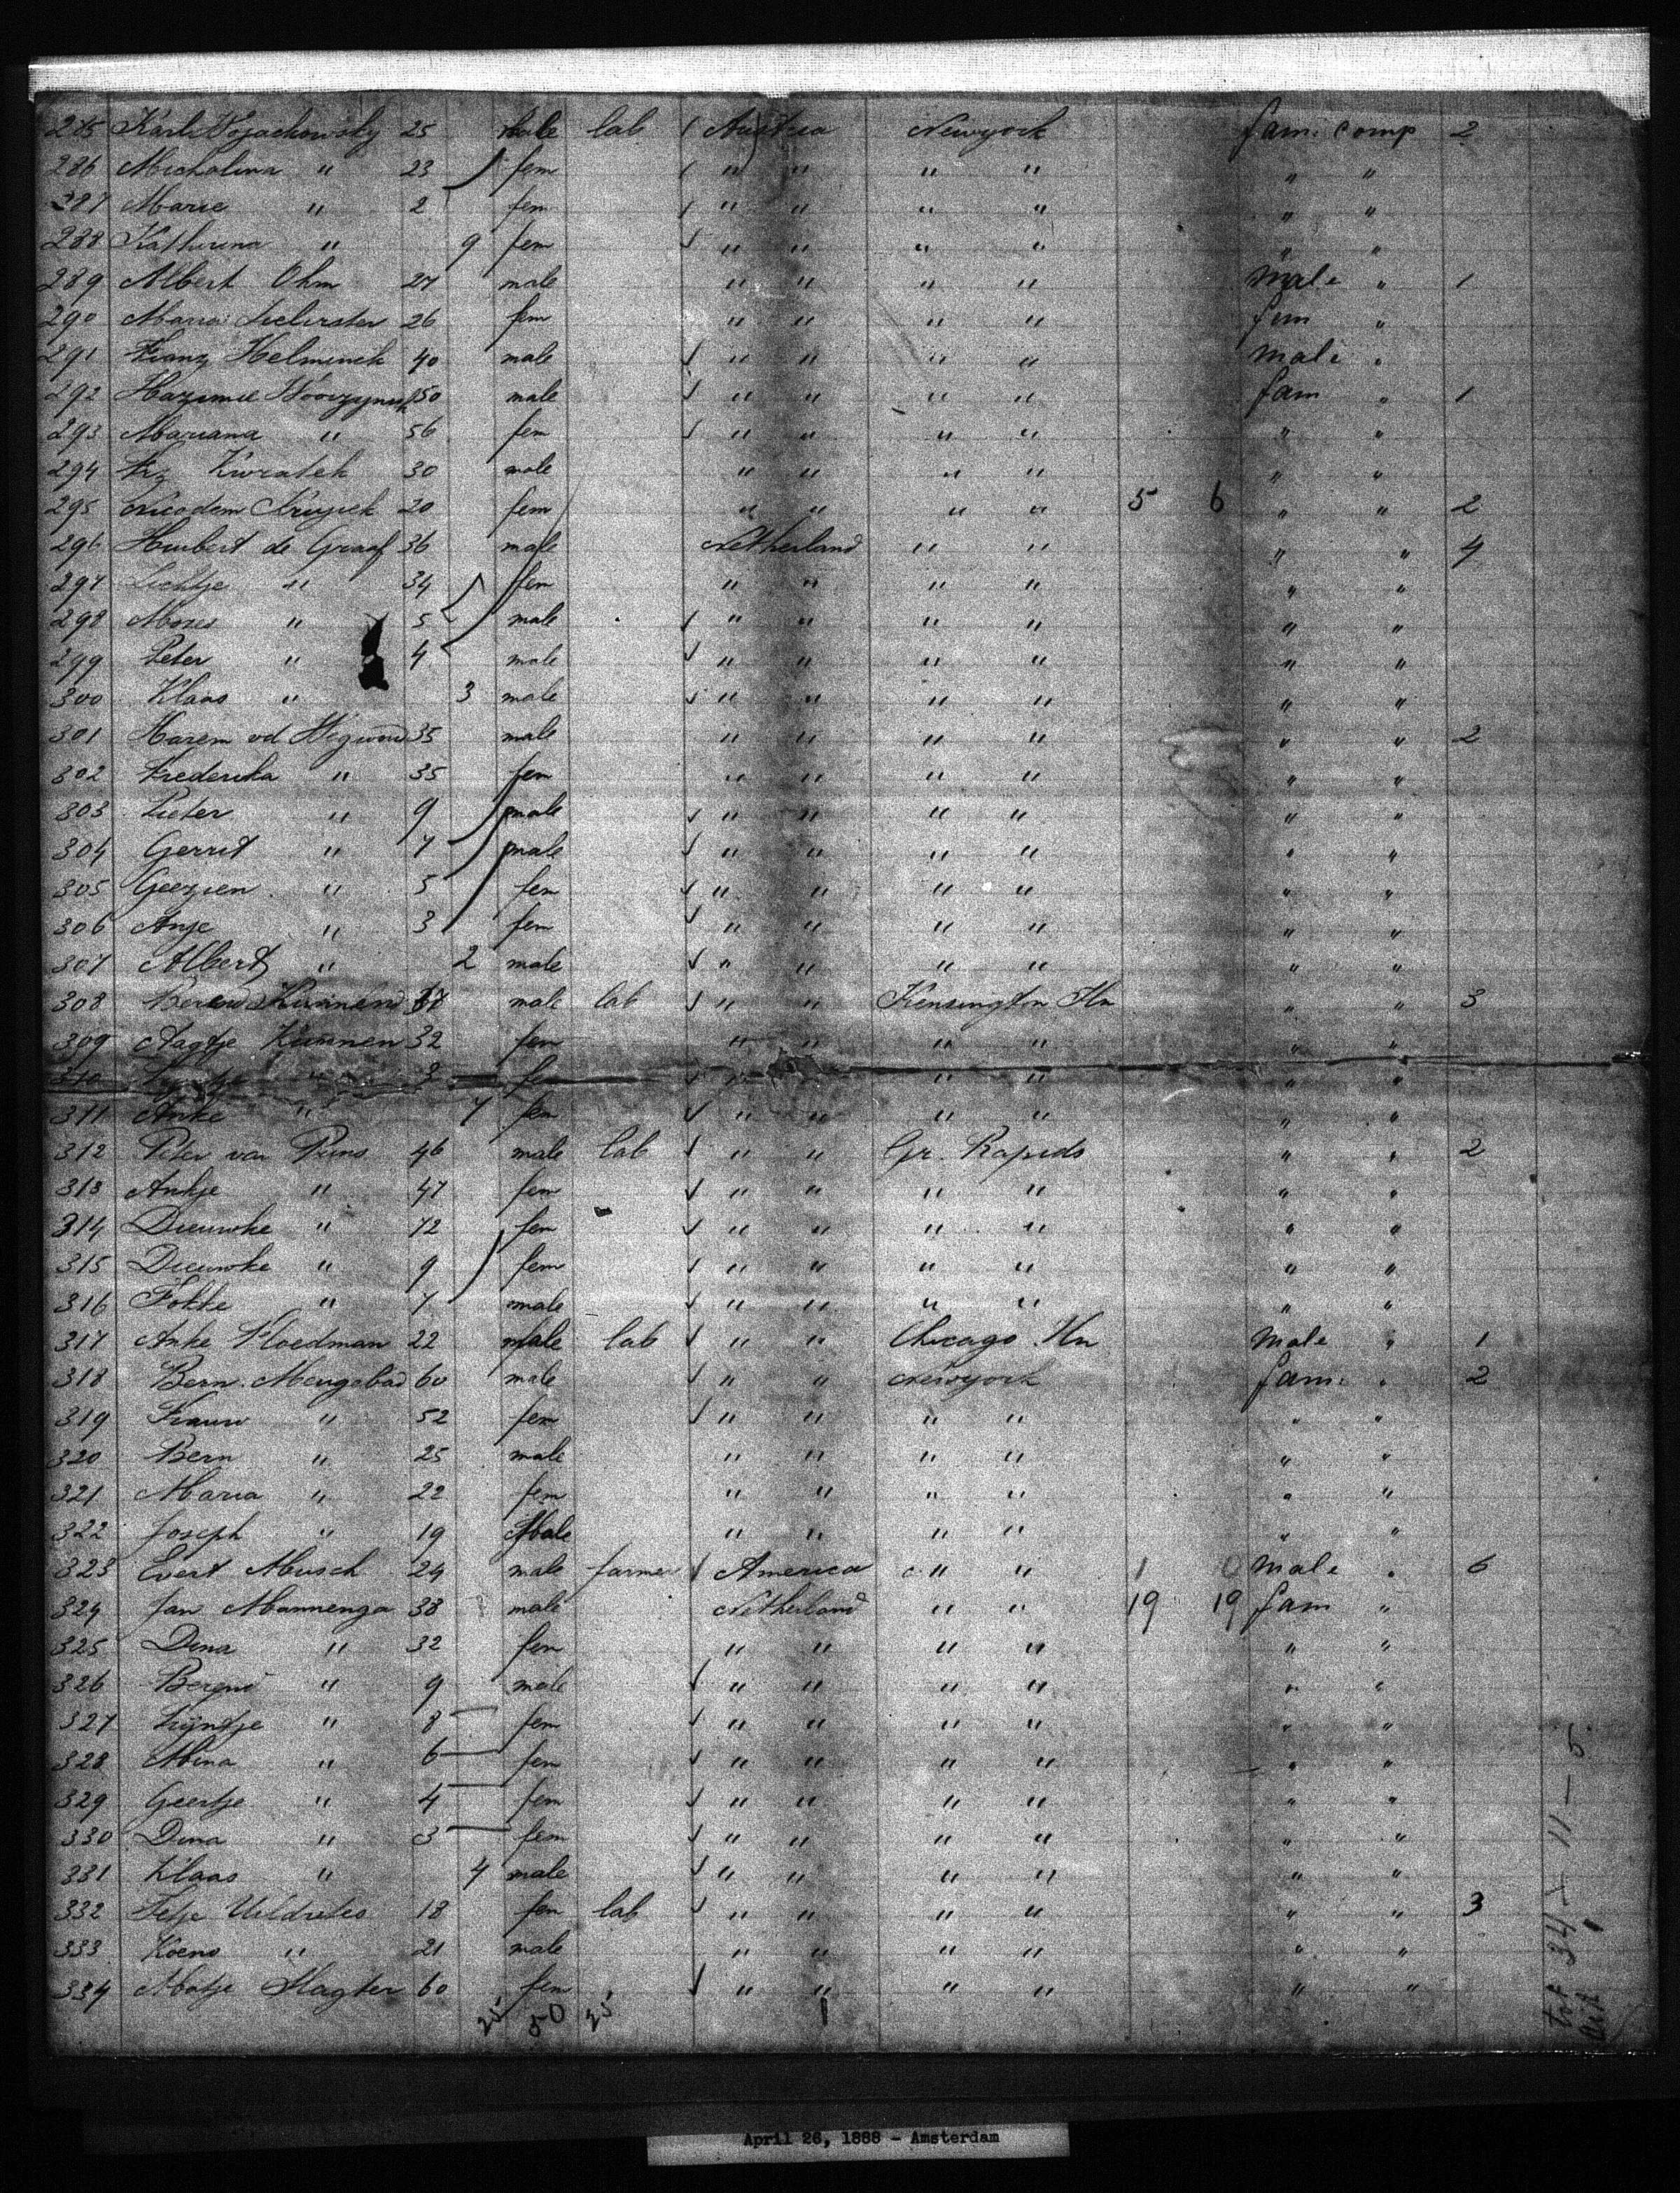 285 Karl Wojachowsky 25 male lab Austria Newyork fam. comp 2
286 Micholina " 23 fem " " " " " "
287 Marie " 2 fem " " " " " "
288 Katharina " 9 fem " " " " " "
289 Albert Ohm 27 male " " " " male " 1
290 Maria 26 fem " " " " fem "
291 Franz Helminck 40 male " " " " male "
292 50 male " " " " fam " 1
293 Mariana " 56 fem " " " " " "
294 Frz Kwiatek 30 male " " " " " "
295 Nicodem 20 fem " " " " 5 6 " " 2
296 Huibert de Graaf 36 male Netherland " " " " 4
297 " 34 fem " " " " " "
298 Moses " 5 male " " " " " "
299 Peter " 4 male " " " " " "
300 Klaas " 3 male " " " " " "
301 Harem vd 35 male " " " " " " 2
302 Frederika " 35 fem " " " " " "
303 Pieter " 9 male " " " " " "
304 Gerrit " 7 male " " " " " "
305 Geezien " 5 fem " " " " " "
306 Anje " 3 fem " " " " " "
307 Albert " 2 male " " " " " "
308 37 male lab " " Kensington " " 3
309 Aagtje Kunnen 32 fem " " " " " "
310 " 3 fem " " " " " "
311 Anke " 7 fem " " " " " "
312 Peter van 46 male lab " " Gr. Rapids " " 2
313 Antje " 47 fem " " " " " "
314 Dieuwke " 12 fem " " " " " "
315 Dieuwke " 9 fem " " " " " "
316 Fokke " 7 male " " " " " "
317 Anke Kloedman 22 male lab " " Chicago male " 1
318 Bern. 60 male " " Newyork fam. " 2
319 " 52 fem " " " " " "
320 Bern " 25 male " " " " " "
321 Maria " 22 fem " " " " " "
322 Joseph " 19 Male " " " " " "
323 Evert Musch 24 male farmer America " " 1 0 male " 6
324 Jan Mannenga 38 male Netherland " " 19 19 fam "
325 Dina " 32 fem " " " " " "
326 " 9 male " " " " " "
327 Lijntje " 8 fem " " " " " "
328 Mina " 6 fem " " " " " "
329 Geertje " 4 fem " " " " " "
330 Dina " 3 fem " " " " " "
331 Klaas " 4 male " " " " " "
332 18 fem lab " " " " " " 3
333 Koeno " 21 male " " " " " "
334 Slagter 60 fem " " " " " "
25 50 25
11 - 5
April 26, 1888 - Amsterdam